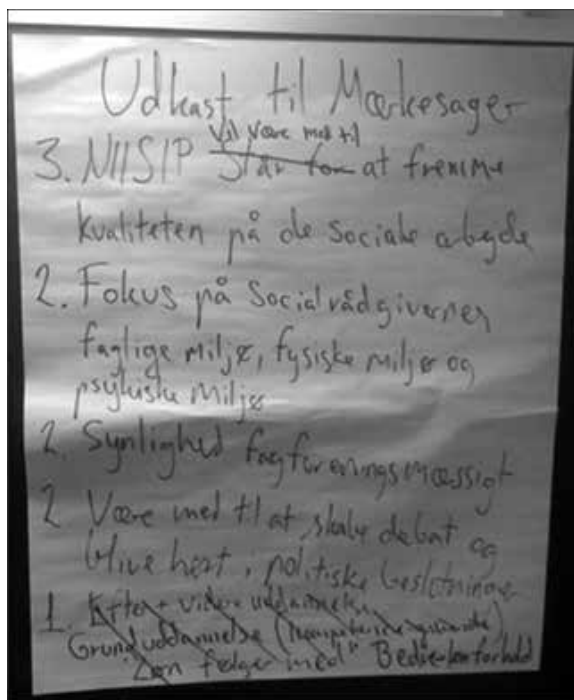 Udkast til Mærkesager
Vil være med til
3. NIISIP Står for at fremme
kvaliteten på de sociale arbejde
2. Fokus på Socialrådgivernes
faglige miljø, fysiske miljø og
psykiske miljø
2. Synlighed fagforeningsmæssigt
2 Være med til at skabe debat og
blive hørt i politiske beslutninger
1. Efter + videre uddannelse
Grunduddannelse (kompetencegivende)
"Løn følger med"